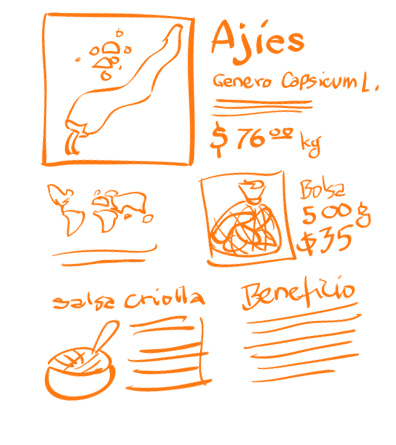 Ajíes
Genero Capsicum L.
$ 76⁰⁰ kg
Bolsa
500g
$35
Salsa criolla
Beneficio